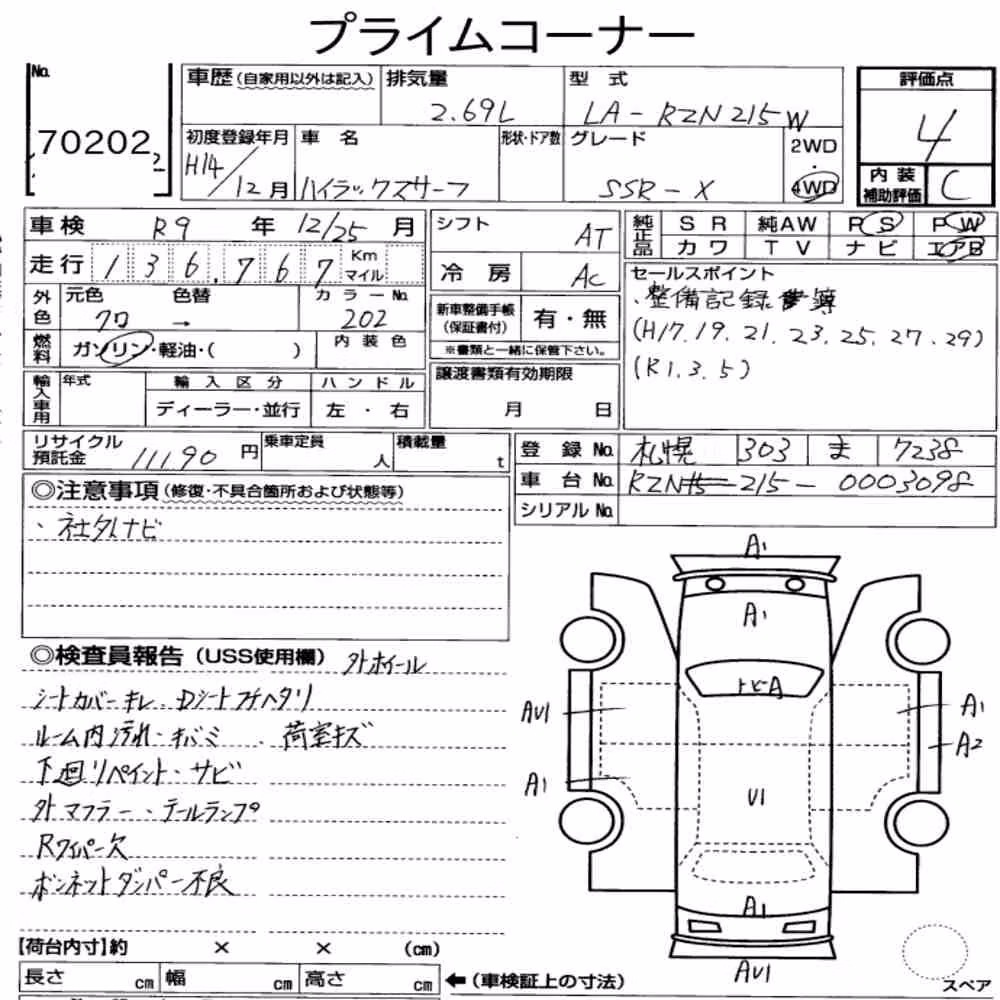 プライムコーナー
No. 70202 2
車歴(自家用以外は記入) 排気量 2.69L 型式 LA-RZN215W
評価点 4
初度登録年月 H14/12月 車名 ハイラックスサーフ 形状・ドア数 グレード SSR-X 2WD・4WD
内装補助評価 C
車検 R9年 12/25月
走行 136,767 Km マイル
シフト AT
冷房 AC
純正品 SR 純AW PS PW
カワ TV ナビ エアB
外色 元色 クロ → 色替 カラーNo. 202
燃料 ガソリン・軽油・( ) 内装色
新車整備手帳(保証書付) 有・無
※書類と一緒に保管下さい。
セールスポイント
・整備記録簿
(H17.19.21.23.25.27.29)
(R1.3.5)
輸入車用 年式 輸入区分 ハンドル
ディーラー・並行 左・右
譲渡書類有効期限
月 日
リサイクル預託金 11190円 乗車定員 人 積載量 t
登録No. 札幌 303 ま 7238
車台No. RZN215-0003098
シリアルNo.
◎注意事項(修復・不具合箇所および状態等)
・社外ナビ
◎検査員報告(USS使用欄) 外ホイール
シートカバーキレ.Dシートフチヘタリ
ルーム内汚れ・キバミ.荷室キズ
下廻リペイント・サビ
外マフラー・テールランプ
Rワイパー欠
ボンネットダンパー不良
A1
A1
トビA
AU1
A1
A1
A2
U1
A1
AU1
【荷台内寸】約 × × (cm)
長さ cm 幅 cm 高さ cm ←(車検証上の寸法)
スペア